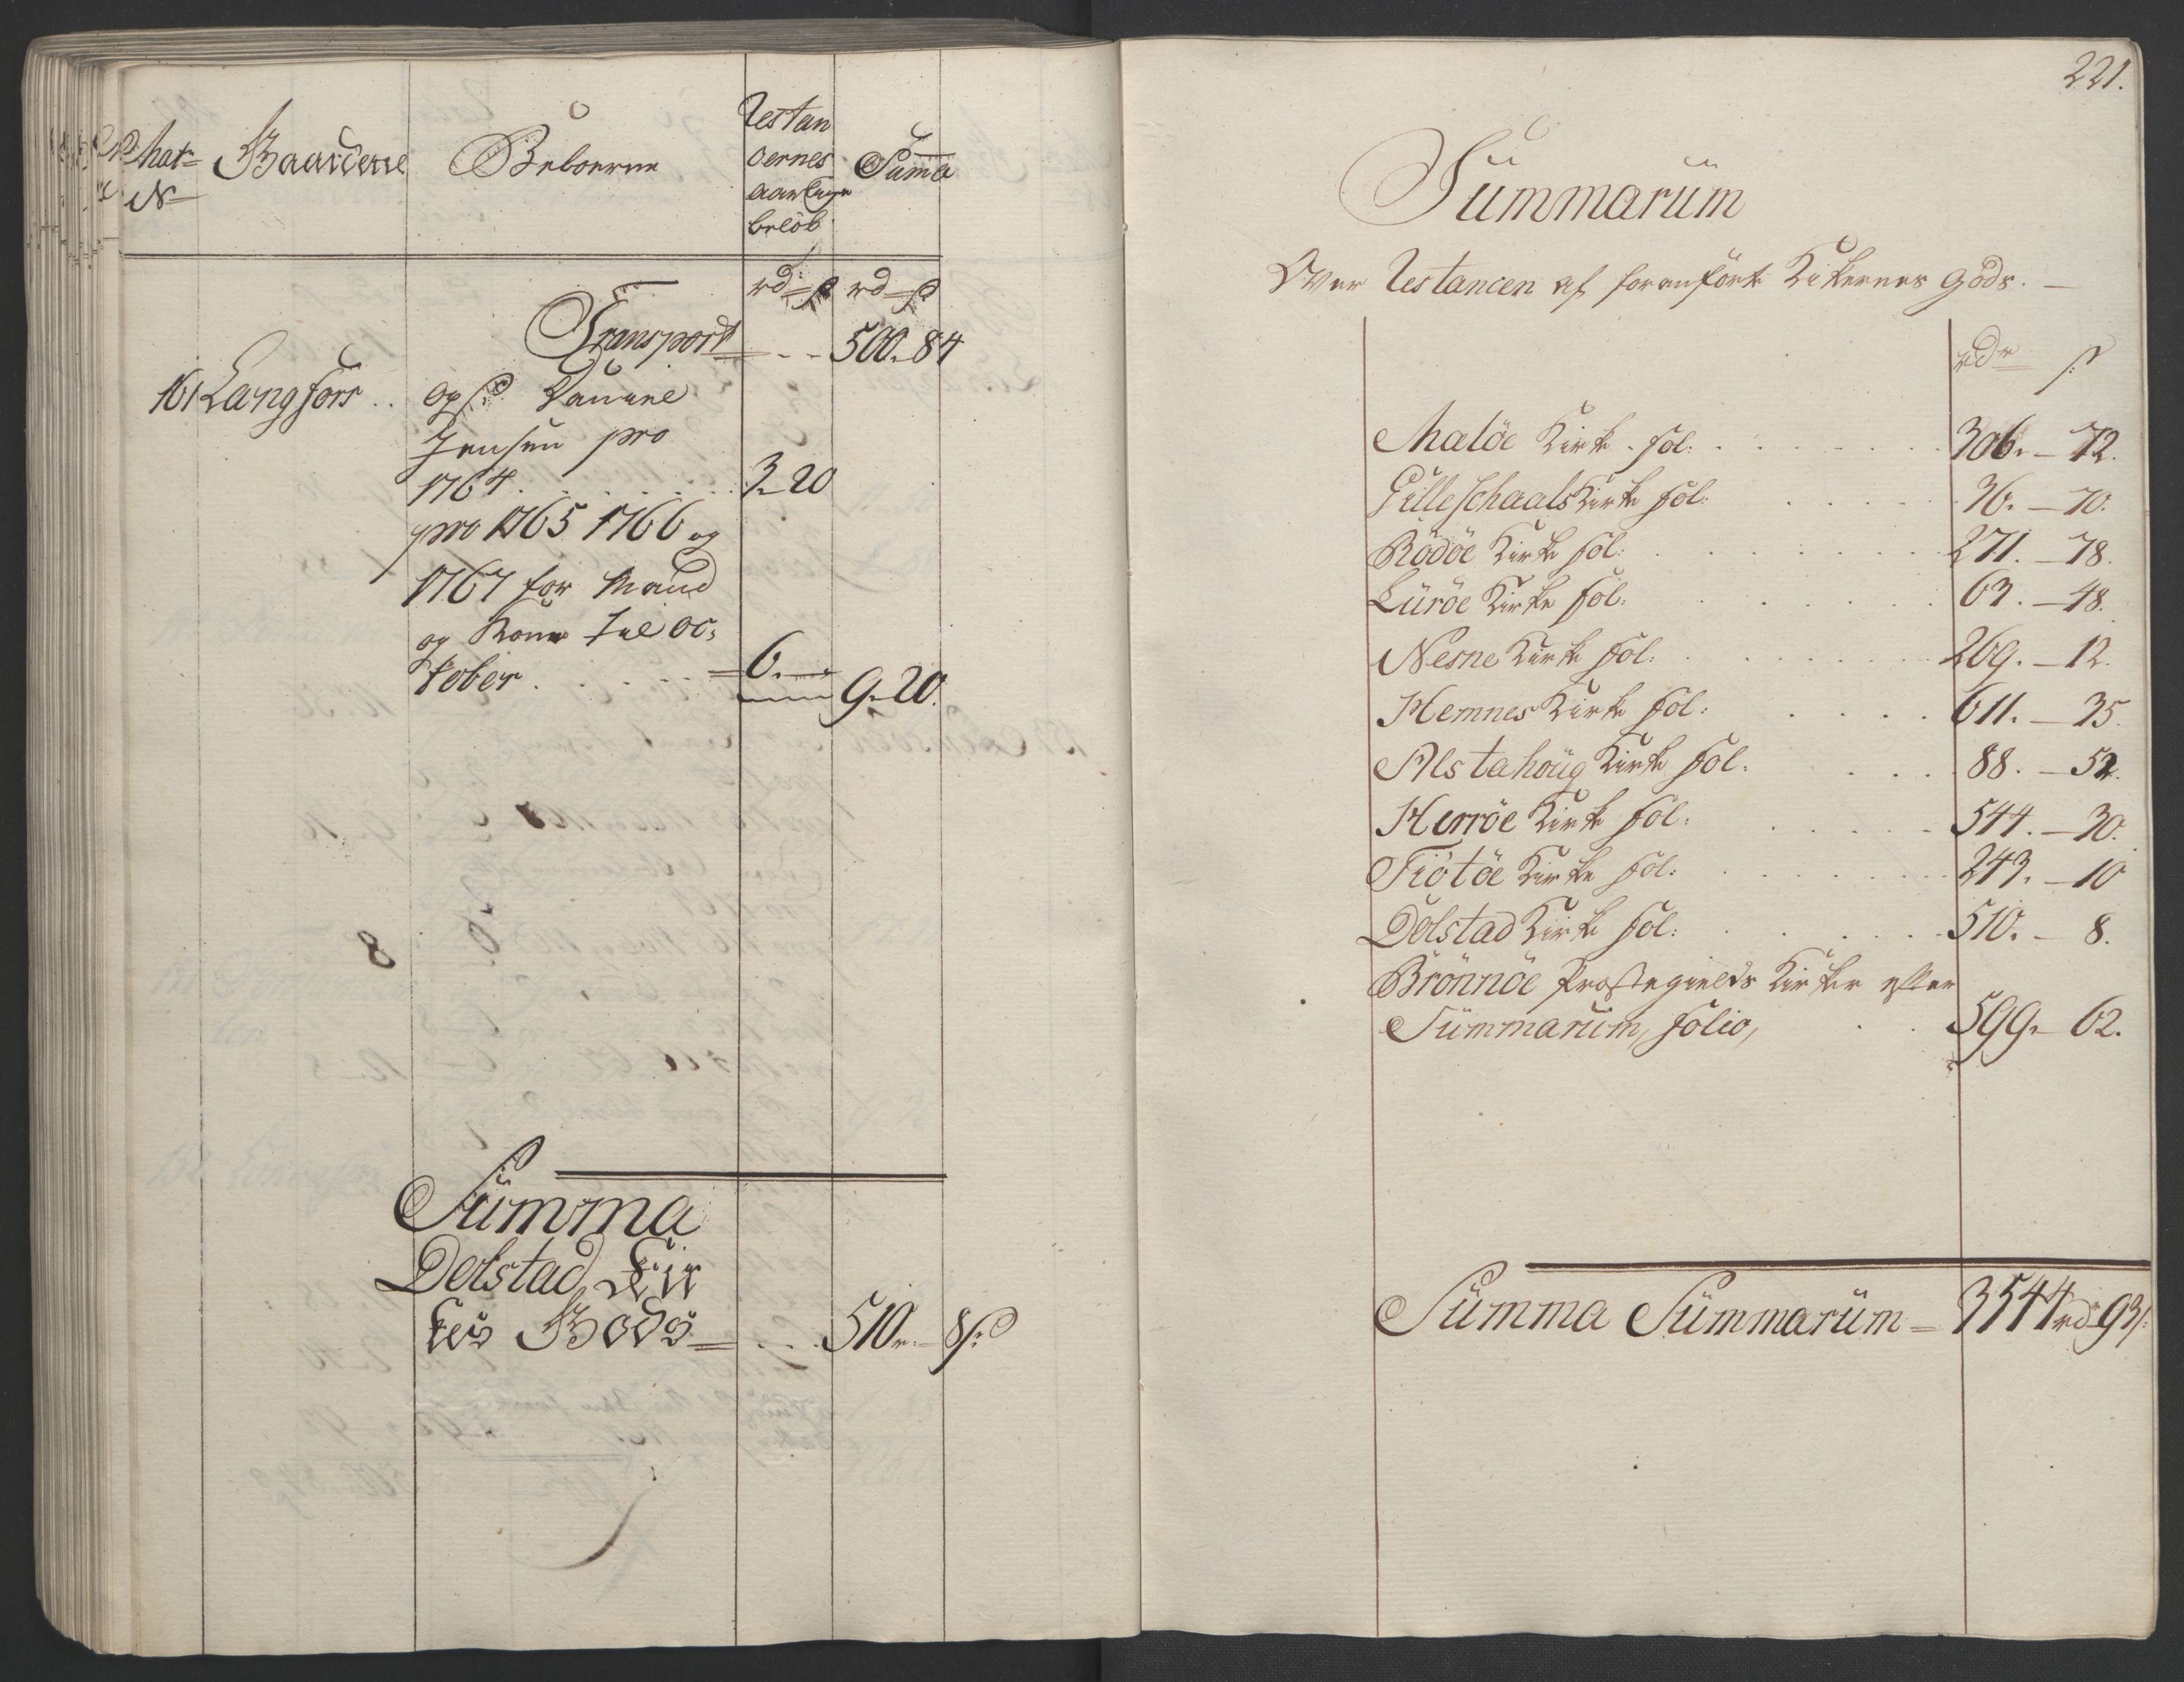 Mat=
N=
Gaardene
Beboerne
Restan
cernes
aarlige
beløb
Suma
rd= s rd= s
Transport = . . 500. 84
161 Langfors . . og
Jensen pro
1764 . . . . . . 3. 20
pro 1765 1766 og
1767 for Mand
og Kone til Oc:
tober . . . . . = 6. —
9. 20.
8
Summa
Dolstad Kir
kes Gods = . . . 510. 8 s
221.
Summarum
Over Restancen af foranførte Kirkernes Gods. —
rdr s
Meløe Kirke fol: . . . . . . 306. — 72.
Gilleschaals Kirke fol: . . . . 36. — 70.
Rödöe Kirke fol: . . . . . . 271. — 78.
Luröe Kirke fol: . . . . . 63. — 48.
Nesne Kirke fol: . . . . . . 269. — 12.
Hemnes Kirke fol: . . . . 611. — 35.
Alstahoug Kirke fol: . . . 88. — 52.
Herröe Kirke fol: . . . . 544. — 30.
Tiötöe Kirke fol: . . . . . . 243. — 10
Dolstad Kirke fol: . . . . . 510. — 8.
Brönnöe Prestegields Kirker efter
Summarum, folio, . . 599. — 62.
Summa Summarum = 3544 rd 93 s.